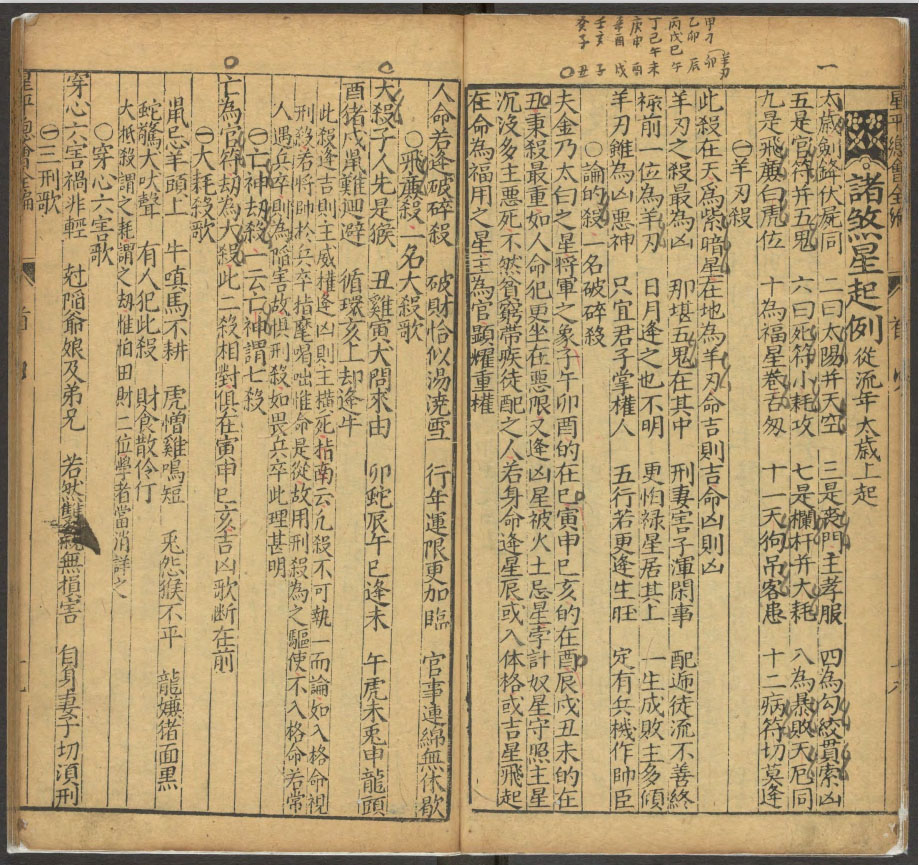 一
甲刀卯
乙卯辰
丙戊巳午
丁己午未
庚申酉
辛酉戌
壬亥子
癸子丑
諸煞星起例 從流年太歲上起
太歲劍鋒伏屍同 二曰太陽并天空 三是喪門主孝服 四為勾絞貫索凶
五是官符并五鬼 六曰死符小耗攻 七是欄杆并大耗 八為暴敗天厄同
九是飛廉曰虎位 十為福星卷舌匆 十一天狗吊客患 十二病符切莫逢
㊀羊刃殺
此殺在天為紫暗星在地為羊刃命吉則吉命凶則凶
羊刃之殺最為凶 那堪五鬼在其中 刑妻害子渾閑事 配遞徒流不善終
祿前一位為羊刃 日月逢之也不明 更怕祿星居其上 一生成敗主多傾
羊刃雖為凶惡神 只宜君子掌權人 五行若更逢生旺 定有兵機作帥臣
○論的殺 一名破碎殺
夫金乃太白之星將軍之象子午卯酉的在巳寅申巳亥的在酉辰戌丑未的在
丑秉殺最重如人命犯更坐在惡限又逢凶星被火土忌星孛計奴星守照主星
沉沒多主惡死不然貧窮帶疾徒配之人若身命逢星辰或入体格或吉星飛起
在命為福用之星主為官顯耀重權
人命若逢破碎殺 破財恰似湯澆雪 行年運限更加臨 官事連綿無休歇
○飛廉殺 一名大殺歌
大殺子人先是猴 丑雞寅犬問來由 卯蛇辰午巳逢未 午虎未兎申龍頭
酉猪戌鼠難迴避 循環亥上却逢牛
此殺逢吉則主威權逢凶則主橫死指南云凡殺不可執一而論如入格命視
刑殺若將帥於兵卒指麾喝咄惟命是從故用刑殺為之驅使不入格命若常
人遇兵卒則為陷害故惧刑殺如畏兵卒此理甚明
㊀亡神劫殺 一云亡神謂七殺
亡為官符劫為大殺此二殺相對俱在寅申巳亥吉凶歌断在前
㊀大耗殺歌
鼠忌羊頭上 牛嗔馬不耕 虎憎雞鳴短 兎怨猴不平 龍嫌猪面黑
蛇驚犬吠聲 有人犯此殺 財食散伶仃
大抵殺謂之耗謂之劫惟怕田財二位學者當消詳之
○穿心六害歌
穿心六害禍非輕 尅陷爺娘及弟兄 若然無損害 自身妻子切須刑
㊀三刑歌